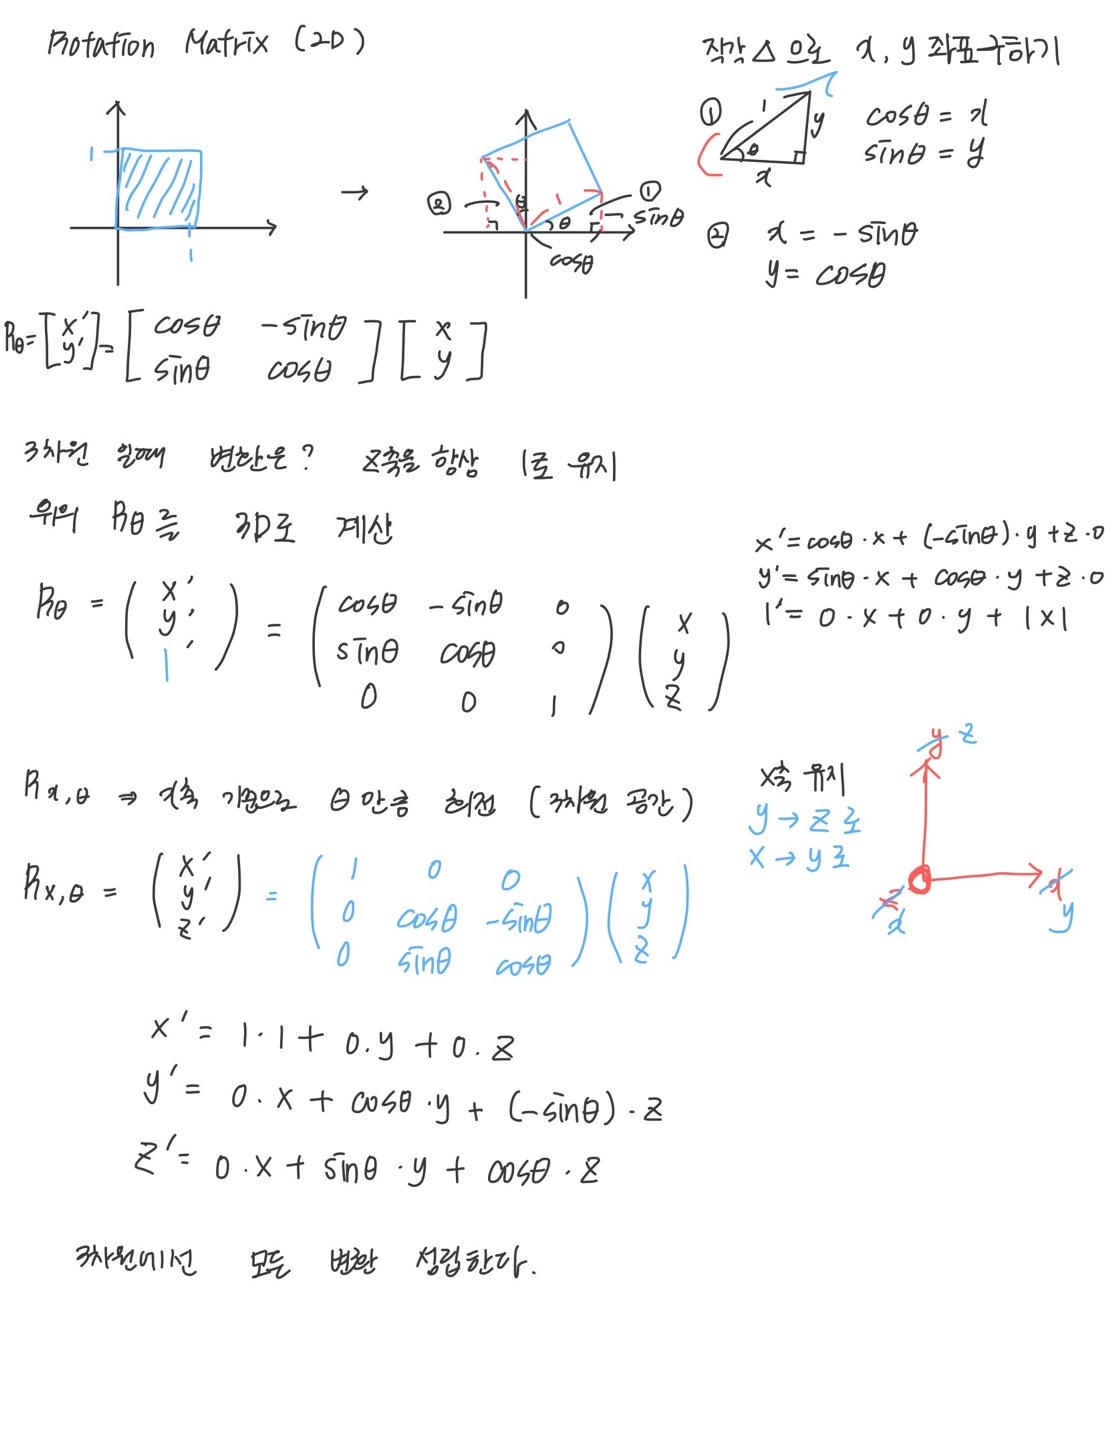 Rotation Matrix (2D)
직각 △ 으로 x, y 좌표구하기
① 1 θ x y
cosθ = x
sinθ = y
1
1
→
② θ 1 θ ① sinθ
cosθ
② x = - sinθ
y = cosθ
Rθ = [x' y'] = [cosθ -sinθ sinθ cosθ] [x y]
3차원 일때 변환은? z축을 항상 1로 유지
위의 Rθ를 3D로 계산
x' = cosθ · x + (-sinθ) · y + z · 0
y' = sinθ · x + cosθ · y + z · 0
1' = 0 · x + 0 · y + 1x1
Rθ = (x' y' 1') = (cosθ -sinθ 0 sinθ cosθ 0 0 0 1) (x y z)
Rx,θ ⇒ x축 기준으로 θ 만큼 회전 (3차원 공간)
x축 유지
y → z 로
x → y 로
y z
x y
z x
Rx,θ = (x' y' z') = (1 0 0 0 cosθ -sinθ 0 sinθ cosθ) (x y z)
x' = 1 · 1 + 0 . y + 0 . z
y' = 0 . x + cosθ · y + (-sinθ) · z
z' = 0 · x + sinθ · y + cosθ · z
3차원에선 모든 변환 성립한다.